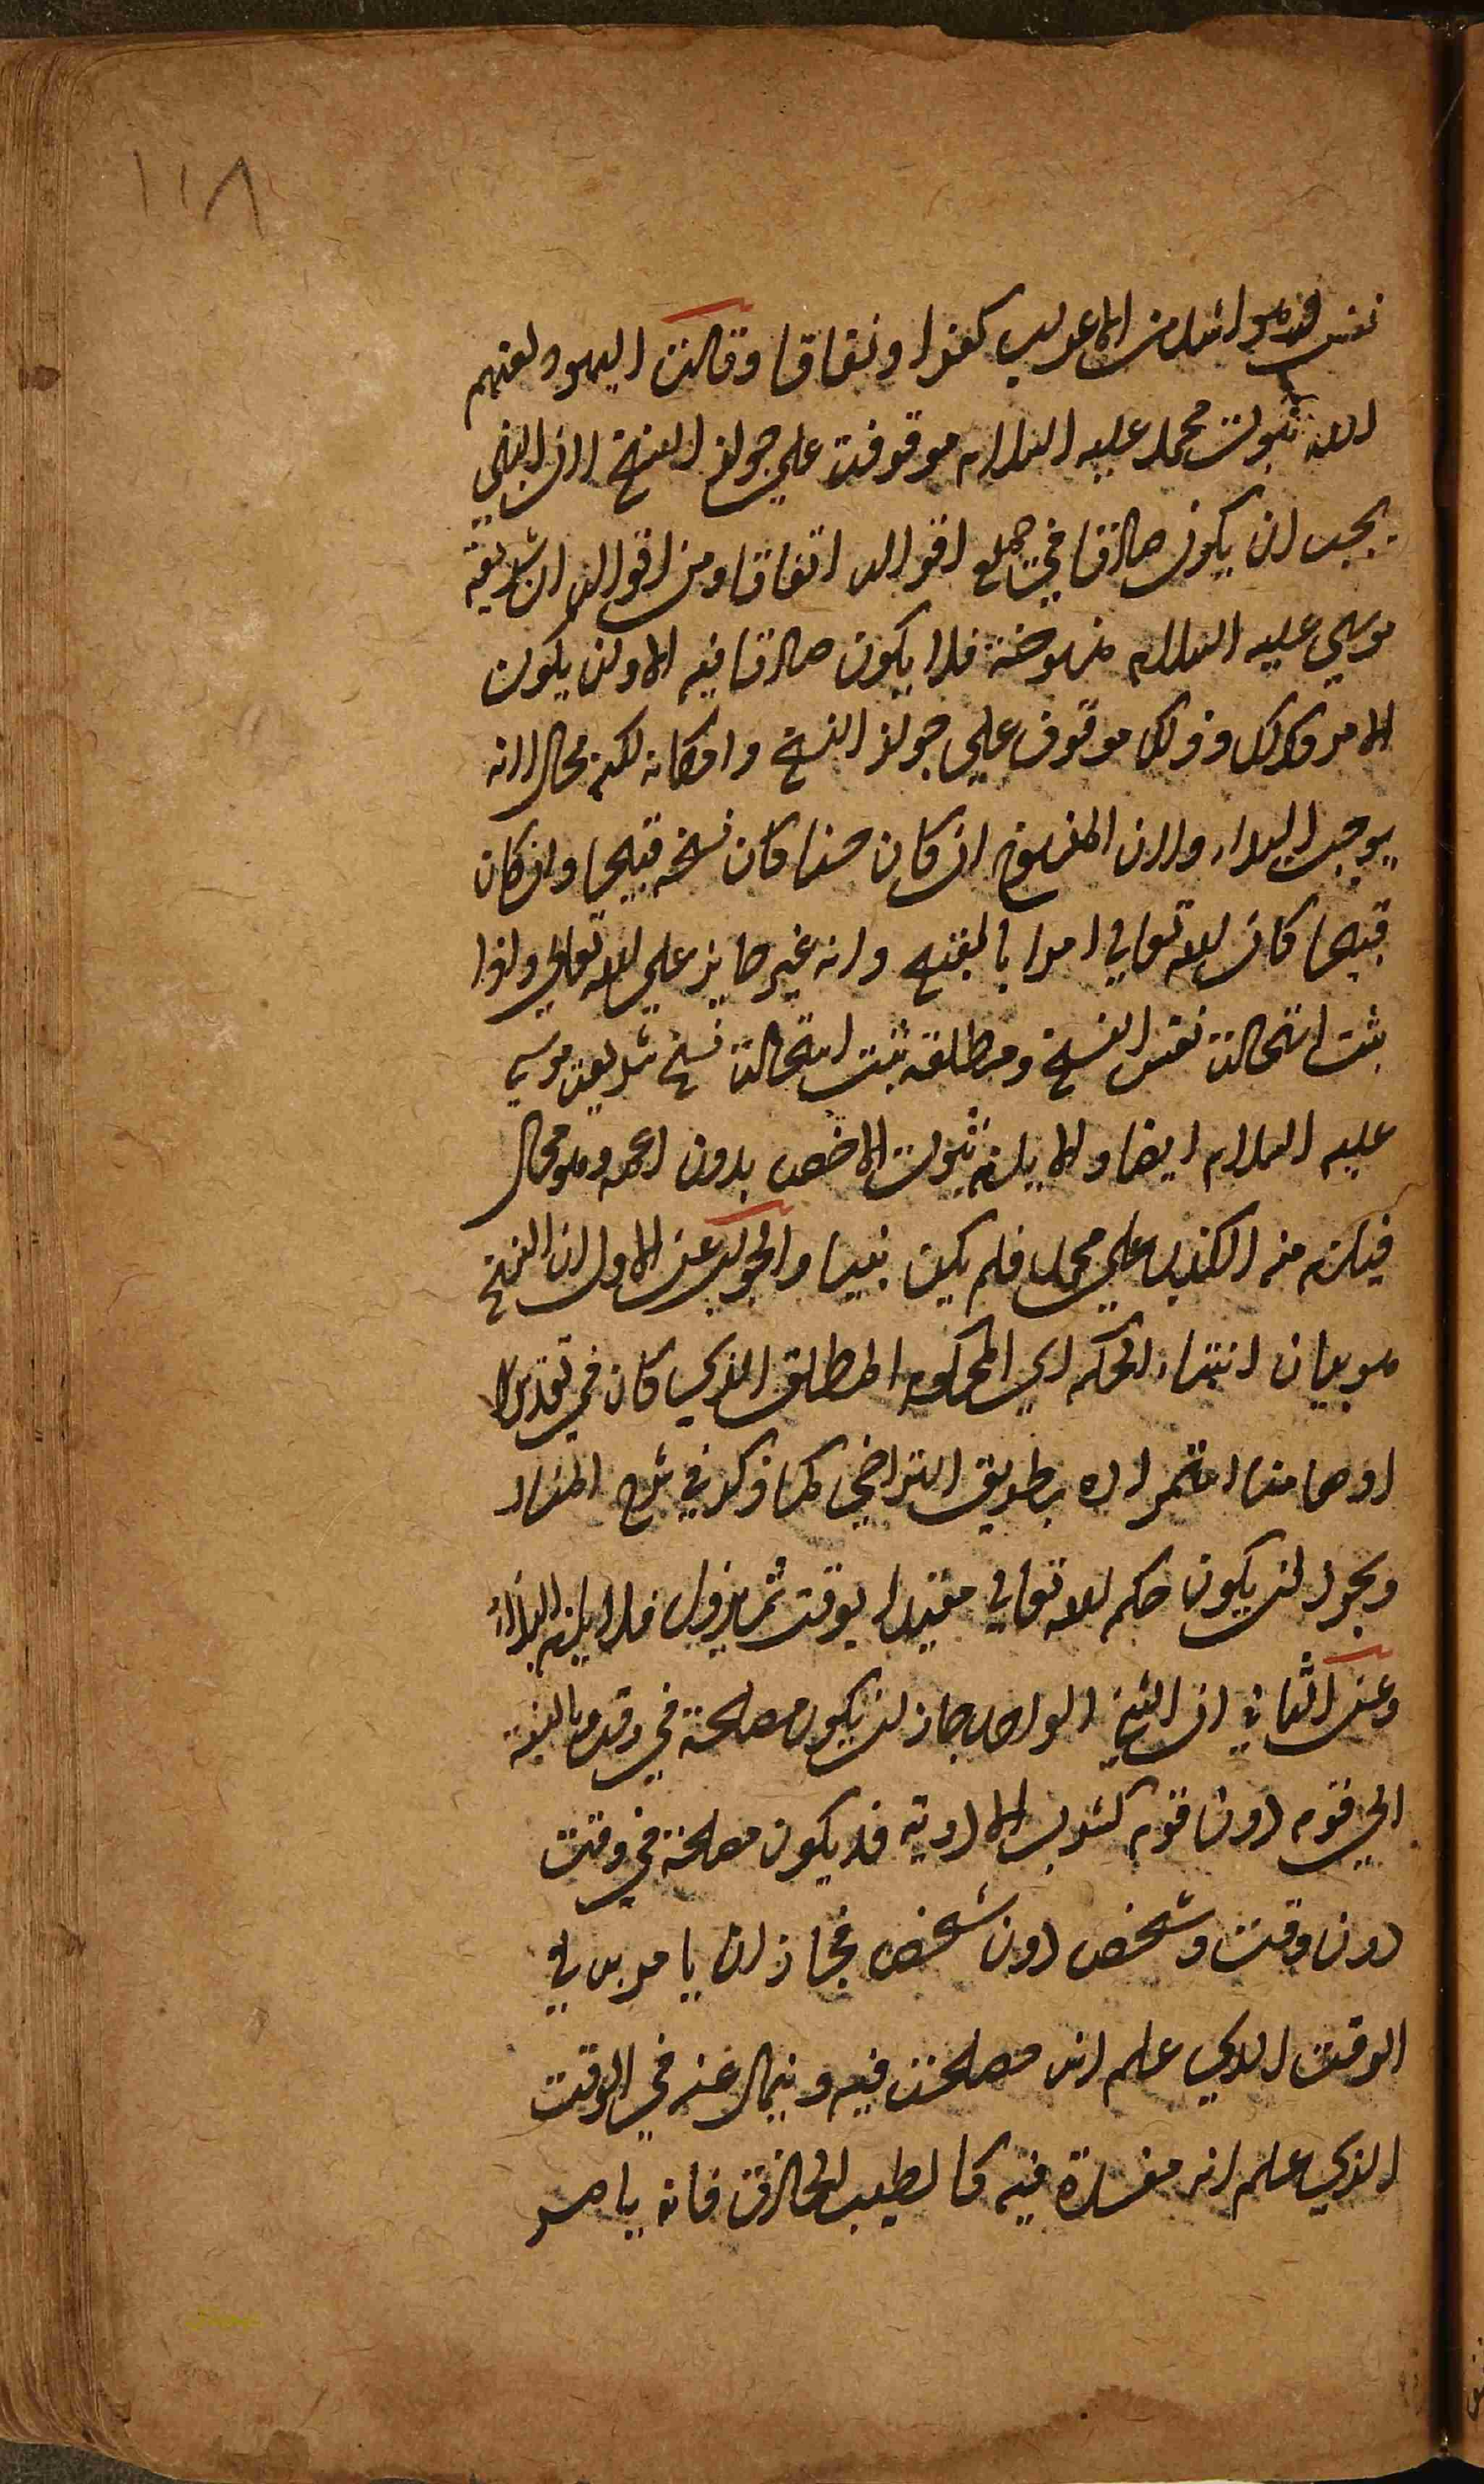 ١١٨
نفس فهو اشد من الاعراب كفرا ونفاقا وقالت اليهود لعنهم
الله نبوت محمد عليه السلام موقوفة علي جواز النسخ لان النبي
يجب ان يكون صادقا في جميع اقواله اتفاقا ومن اقواله ان شريعة
موسي عليه السلام منسوخة فلا يكون صادقا فيه الا وان يكون
الامر كذلك وذلك موقوف علي جواز النسخ وامكانه لكنه محال لانه
يوجب البداء ولان المنسوخ ان كان حسنا كان نسخه قبيحا وان كان
قبيحا كان الله تعالي امرا بالقبيح وانه غير جايز علي الله تعالي واذا
ثبت استحالة نفس النسخ ومطلقه ثبت استحالة نسخ شريعت موسي
عليه السلام ايضا والا يلزم ثبوت الاخص بدون اعمه وهو محال
فيلزم منه الكذب علي محمد فلم يكن نبيا والجواب عن الاول ان النسخ
هو بيان انتهاء الحكم اي المحكوم المطلق الذي كان في تقدير
اوهامنا استمراره بطريق التراخي كما ذكر في شرح المنار
ويجوز ان يكون حكم الله تعالي مقيدا بوقت ثم يزول فلا يلزم البداء
وعن الثاني ان الشيخ الواحد جاز ان يكون مصلحة في وقت وبالنسبة
الي قوم دون قوم كشرب الادوية قد يكون مصلحة في وقت
دون وقت وشخص دون شخص فجاز ان يامر به في
الوقت الذي علم انه مصلحة فيه وينهي عنه في الوقت
الذي علم انه مفسدة فيه كالطبيب الحاذق فانه يامر